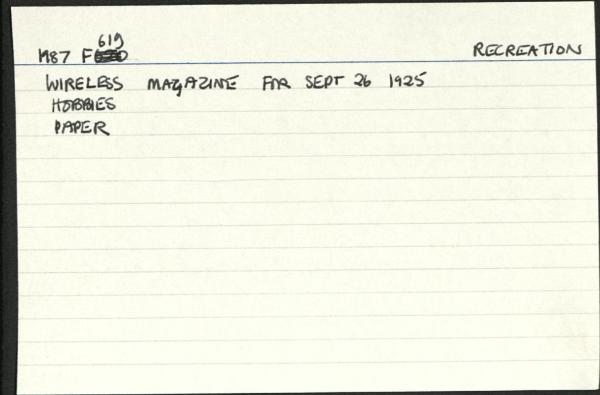 619
M87 F RECREATION
WIRELESS MAGAZINE FOR SEPT 26 1925
HOBBIES
PAPER